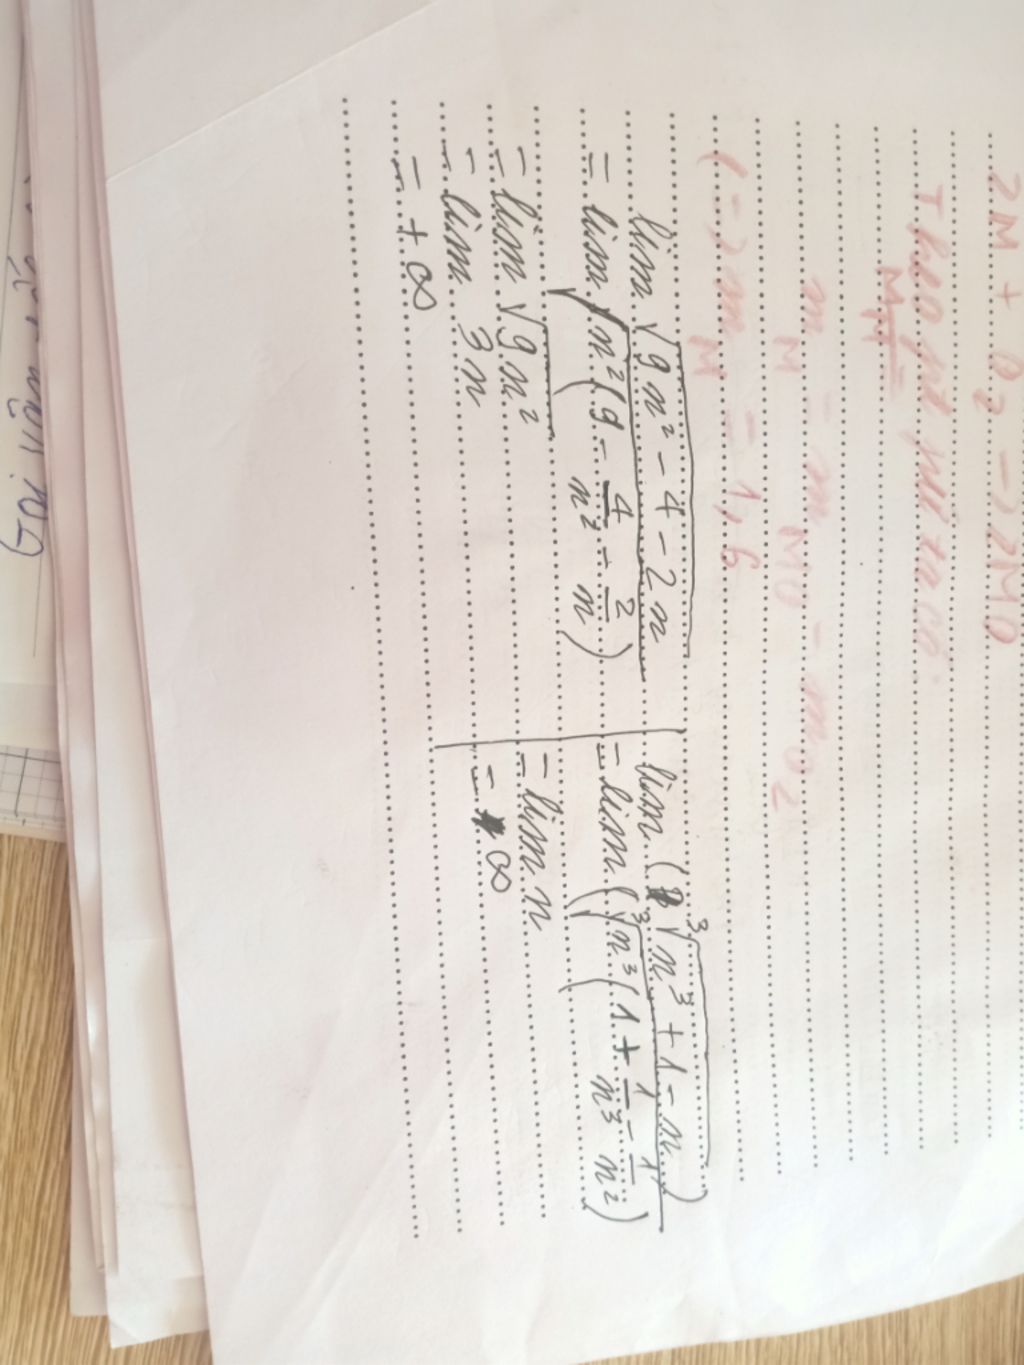 2M + O₂ -> 2MO
Theo
m_M = m_MO - m_O₂
(=) m_M = 1,6
lim √(9n² - 4 - 2n)
= lim √(n²(9 - 4/n² - 2/n))
= lim √(9n²)
= lim 3n
= + ∞
lim (³√(n³ + 1 - n))
= lim (³√(n³(1 + 1/n³ - 1/n²)))
= lim n
= ∞